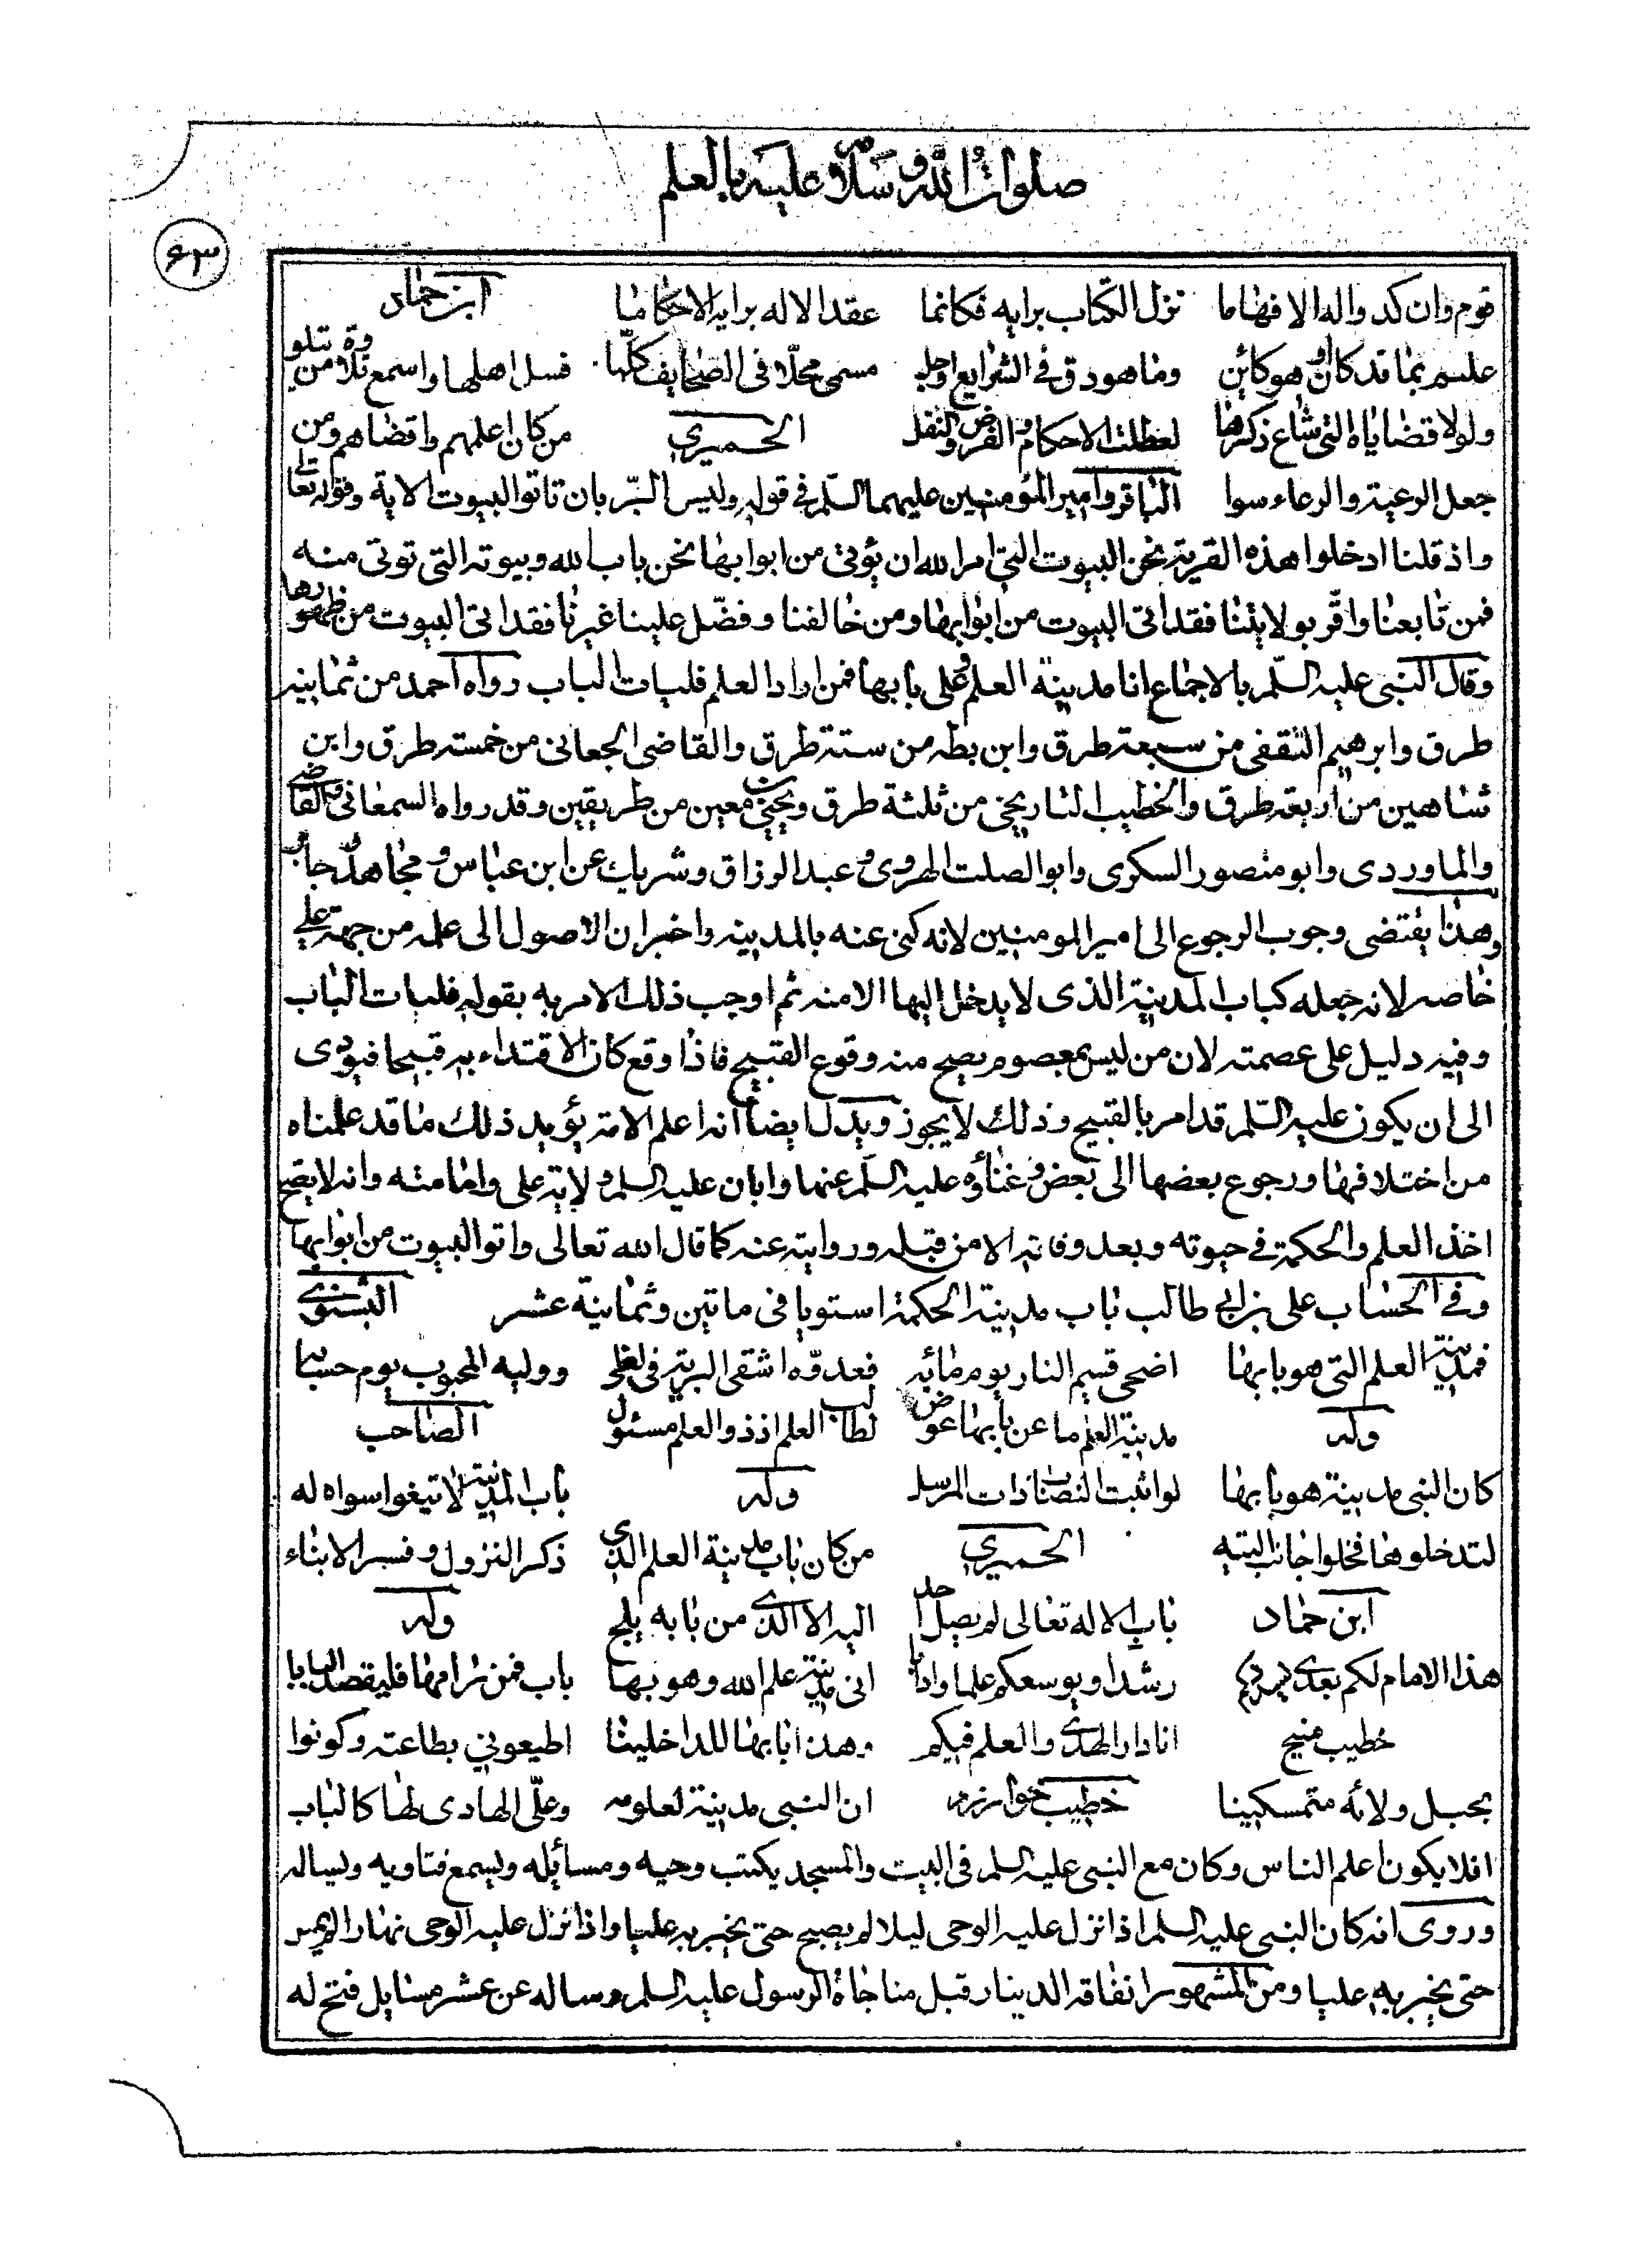 صلوات الله وسلامه عليه بالعلم
٤٣
قوم وان كدوا له الافهاما نزل الكتاب برايه فكانما عقد الاله برايه الاحكاما ابن حماد
عليم بما قد كان او هو كائن وما هو دق في الشرايع او جل مسمى مجلا في الصحايف كلها فسل اهلها واسمع تلاوة من يتلو
ولولا قضاياه التي شاع ذكرها لعطلت الاحكام والفرض والنفل الحميري من كان اعلمهم واقضاهم ومن
جعل الرعية والرعاء سوا الباقر وامير المؤمنين عليهما السلم في قوله وليس البر بان تاتوا البيوت الاية وقوله تعالى
واذ قلنا ادخلوا هذه القرية نحن البيوت التي امر الله ان يؤتى من ابوابها نحن باب الله وبيوته التي توتى منه
فمن تابعنا واقر بولايتنا فقد اتى البيوت من ابوابها ومن خالفنا وفضل علينا غيرنا فقد اتى البيوت من ظهورها
وقال النبي عليه السلم بالاجماع انا مدينة العلم وعلى بابها فمن اراد العلم فليات الباب رواه احمد من ثمانية
طرق وابرهيم الثقفى من سبعة طرق وابن بطه من ستة طرق والقاضى الجعانى من خمسة طرق وابن
شاهين من اربعة طرق والخطيب التاريخى من ثلثة طرق ويحيى بن معين من طريقين وقد رواه السمعانى والقاضى
والماوردى وابو منصور السكرى وابو الصلت الهروى وعبد الرزاق وشريك عن ابن عباس ومجاهد وجابر
وهذا يقتضى وجوب الرجوع الى امير المومنين لانه كنى عنه بالمدينة واخبر ان الاصول الى علمه من جهة علي
خاصه لانه جعله كباب المدينة الذى لا يدخل اليها الا منه ثم اوجب ذلك الامر به بقوله فليات الباب
وفيه دليل على عصمته لان من ليس بمعصوم يصح منه وقوع القبيح فاذا وقع كان الاقتداء به قبيحا فيودى
الى ان يكون عليه السلم قد امر بالقبيح وذلك لا يجوز ويدل ايضا انه اعلم الامة يؤيد ذلك ما قد علمناه
من اختلافها ورجوع بعضها الى بعض وغناؤه عليه السلم عنها وابان عليه السلم ولاية على وامامته وانه لا يصح
اخذ العلم والحكمة في حيوته وبعد وفاته الا من قبله وروايته عنه كما قال الله تعالى واتوا البيوت من ابوابها
وفي الحساب على بن ابى طالب باب مدينة الحكمة استويا فى ماتين وثمانية عشر البشنوي
فمدينة العلم التى هو بابها اضحى قسيم النار يوم مائبه فعدوه اشقى البرية فى لظى ووليه المحبوب يوم حسابه
وله مدينة العلم ما عن بابها عوض لطالب العلم اذ ذو العلم مسئول الصاحب
كان النبى مدينة هو بابها لو اثبت النصاب ذات المرسل وله باب المدينة لا تبغوا سواه له
لتدخلوها فخلوا جانب التيه الحميري من كان باب مدينة العلم الذي ذكر النزول وفسر الانباء
ابن حماد باب الاله تعالى لم يصل احد اليه الا الذي من بابه يلج وله
هذا الامام لكم بعدي رشدا ويوسعكم علما وادابا انى مدينة علم الله وهو بها باب فمن رامها فليقصد البابا
خطيب منبج انا دار الهدى والعلم فيكم وهذا بابها للداخلينا اطيعوني بطاعته وكونوا
بحبل ولائه متمسكينا خطيب خوارزم ان النبى مدينة لعلومه وعلى الهادى لها كالباب
افلا يكون اعلم الناس وكان مع النبى عليه السلم فى البيت والمسجد يكتب وحيه ومسائله ويسمع فتاويه ويساله
وروى انه كان النبى عليه السلم اذا نزل عليه الوحى ليلا لم يصبح حتى يخبر به عليا واذا نزل عليه الوحى نهارا لم يمس
حتى يخبر به عليا ومن المشهور انفاقه الدينار قبل مناجاة الرسول عليه السلم وساله عن عشر مسايل فتح له